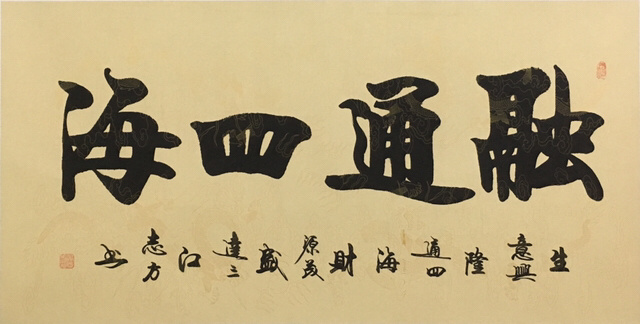 融通四海
生意興隆通四海財源茂盛達三江志方书